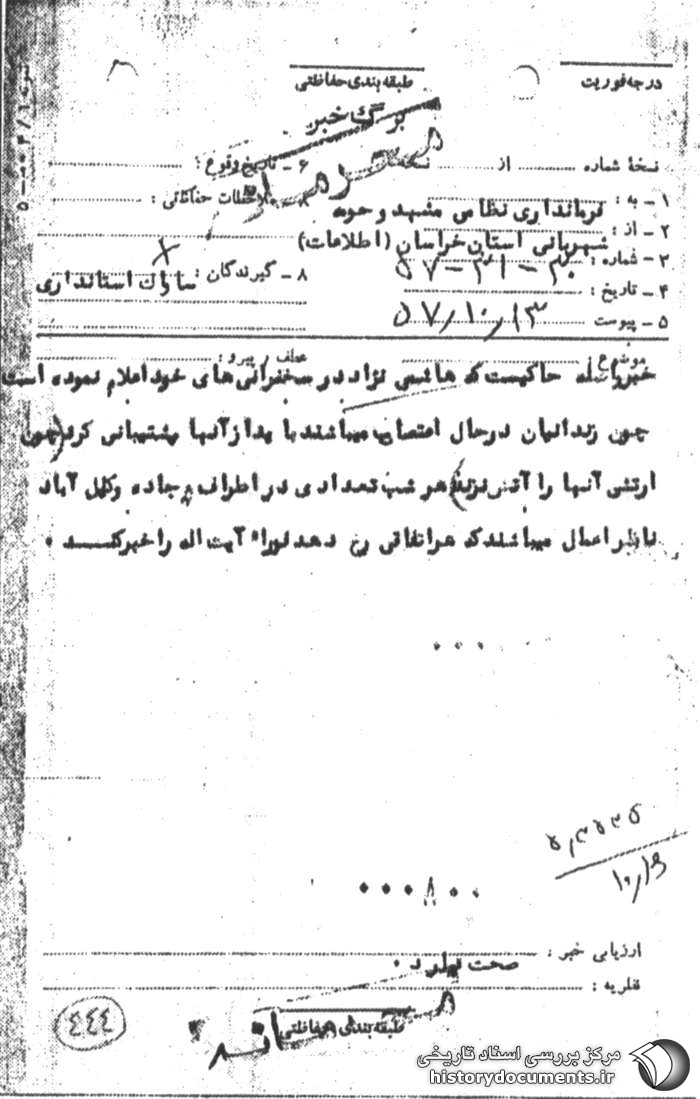 درجه فوریت
طبقه بندی حفاظتی
برگ خبر
محرمانه
نسخهٔ شماره از نسخه
۶ ـ تاریخ وقوع :
۱ ـ به : فرمانداری نظامی مشهد و حومه
ملاحظات حفاظتی :
۲ ـ از : شهربانی استان خراسان (اطلاعات)
۳ ـ شماره :
۸ ـ گیرندگان : ساواک استانداری
۴ ـ تاریخ :
۵ ـ پیوست ۵۷/۱۰/۱۳
موضوع :
عطف / پیرو :
خبر واصله حاکیست که هاشمی نژاد در سخنرانی های خود اعلام نموده است
چون زندانیان در حال اعتصاب میباشند باید از آنها پشتیبانی کرد (چون
ارتش آنها را آتش نزند) هر شب تعدادی در اطراف جاده وکیل آباد
ناظر اعمال میباشند که هر اتفاقی رخ دهد فورا" آیت اله را خبر کنند .
ارزیابی خبر :
صحت دارد .
نظریه :
طبقه بندی حفاظتی
محرمانه
۴۴۴
مرکز بررسی اسناد تاریخی
historydocuments.ir